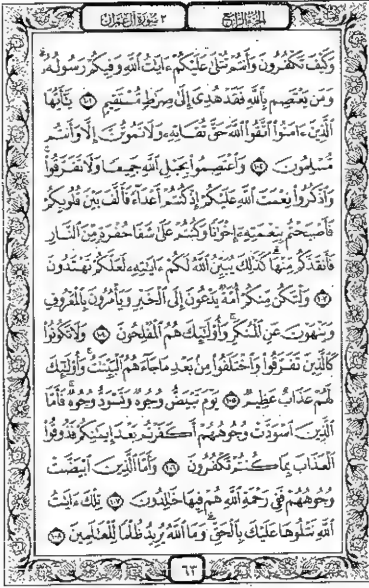 الجزء الرابع ٣ سورة آل عمران
وَكَيْفَ تَكْفُرُونَ وَأَنتُمْ تُتْلَىٰ عَلَيْكُمْ ءَايَٰتُ ٱللَّهِ وَفِيكُمْ رَسُولُهُۥ
وَمَن يَعْتَصِم بِٱللَّهِ فَقَدْ هُدِىَ إِلَىٰ صِرَٰطٍ مُّسْتَقِيمٍ ١٠١ يَٰٓأَيُّهَا
ٱلَّذِينَ ءَامَنُوا۟ ٱتَّقُوا۟ ٱللَّهَ حَقَّ تُقَاتِهِۦ وَلَا تَمُوتُنَّ إِلَّا وَأَنتُم
مُّسْلِمُونَ ١٠٢ وَٱعْتَصِمُوا۟ بِحَبْلِ ٱللَّهِ جَمِيعًا وَلَا تَفَرَّقُوا۟
وَٱذْكُرُوا۟ نِعْمَتَ ٱللَّهِ عَلَيْكُمْ إِذْ كُنتُمْ أَعْدَآءً فَأَلَّفَ بَيْنَ قُلُوبِكُمْ
فَأَصْبَحْتُم بِنِعْمَتِهِۦٓ إِخْوَٰنًا وَكُنتُمْ عَلَىٰ شَفَا حُفْرَةٍ مِّنَ ٱلنَّارِ
فَأَنقَذَكُم مِّنْهَا كَذَٰلِكَ يُبَيِّنُ ٱللَّهُ لَكُمْ ءَايَٰتِهِۦ لَعَلَّكُمْ تَهْتَدُونَ
١٠٣ وَلْتَكُن مِّنكُمْ أُمَّةٌ يَدْعُونَ إِلَى ٱلْخَيْرِ وَيَأْمُرُونَ بِٱلْمَعْرُوفِ
وَيَنْهَوْنَ عَنِ ٱلْمُنكَرِ وَأُو۟لَٰٓئِكَ هُمُ ٱلْمُفْلِحُونَ ١٠٤ وَلَا تَكُونُوا۟
كَٱلَّذِينَ تَفَرَّقُوا۟ وَٱخْتَلَفُوا۟ مِنۢ بَعْدِ مَا جَآءَهُمُ ٱلْبَيِّنَٰتُ وَأُو۟لَٰٓئِكَ
لَهُمْ عَذَابٌ عَظِيمٌ ١٠٥ يَوْمَ تَبْيَضُّ وُجُوهٌ وَتَسْوَدُّ وُجُوهٌ فَأَمَّا
ٱلَّذِينَ ٱسْوَدَّتْ وُجُوهُهُمْ أَكَفَرْتُم بَعْدَ إِيمَٰنِكُمْ فَذُوقُوا۟
ٱلْعَذَابَ بِمَا كُنتُمْ تَكْفُرُونَ ١٠٦ وَأَمَّا ٱلَّذِينَ ٱبْيَضَّتْ
وُجُوهُهُمْ فَفِى رَحْمَةِ ٱللَّهِ هُمْ فِيهَا خَٰلِدُونَ ١٠٧ تِلْكَ ءَايَٰتُ
ٱللَّهِ نَتْلُوهَا عَلَيْكَ بِٱلْحَقِّ وَمَا ٱللَّهُ يُرِيدُ ظُلْمًا لِّلْعَٰلَمِينَ ١٠٨
٦٣